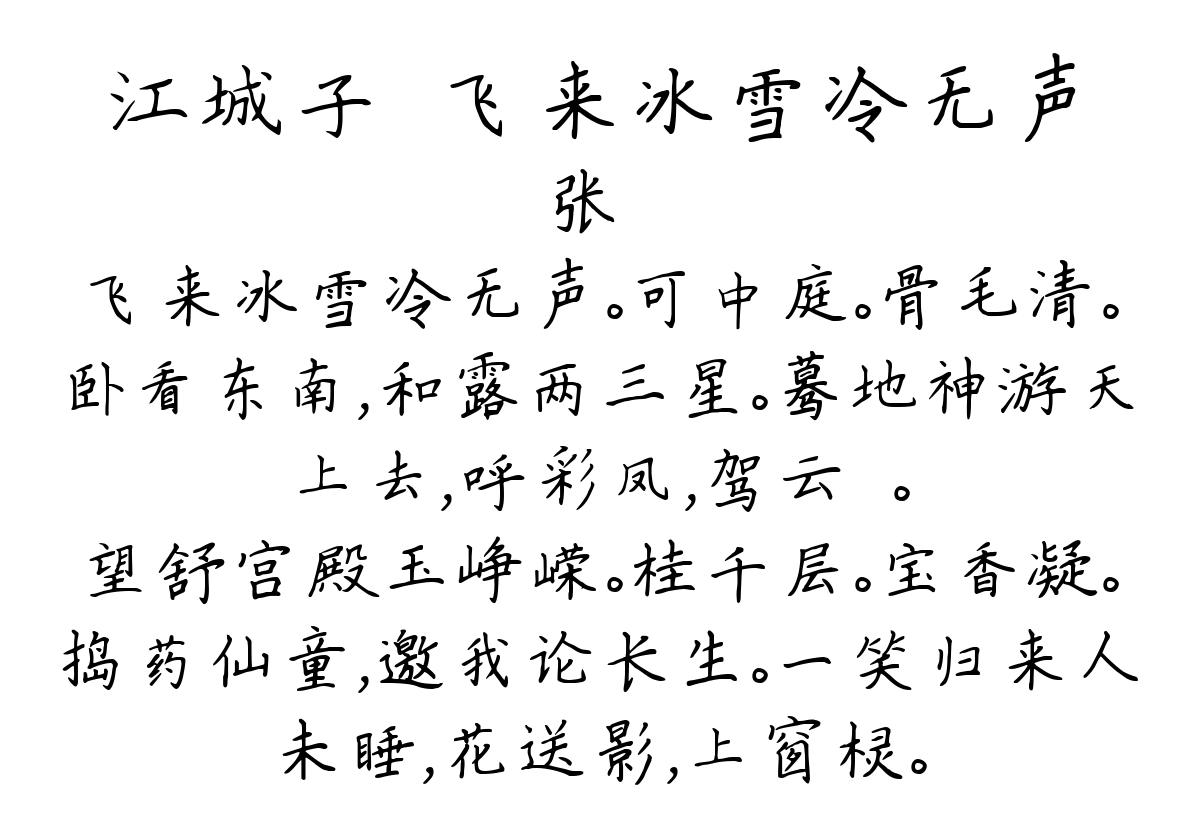 江城子 飞来冰雪冷无声
张
飞来冰雪冷无声。可中庭。骨毛清。
卧看东南,和露两三星。蓦地神游天
上去,呼彩凤,驾云 。
望舒宫殿玉峥嵘。桂千层。宝香凝。
捣药仙童,邀我论长生。一笑归来人
未睡,花送影,上窗棂。